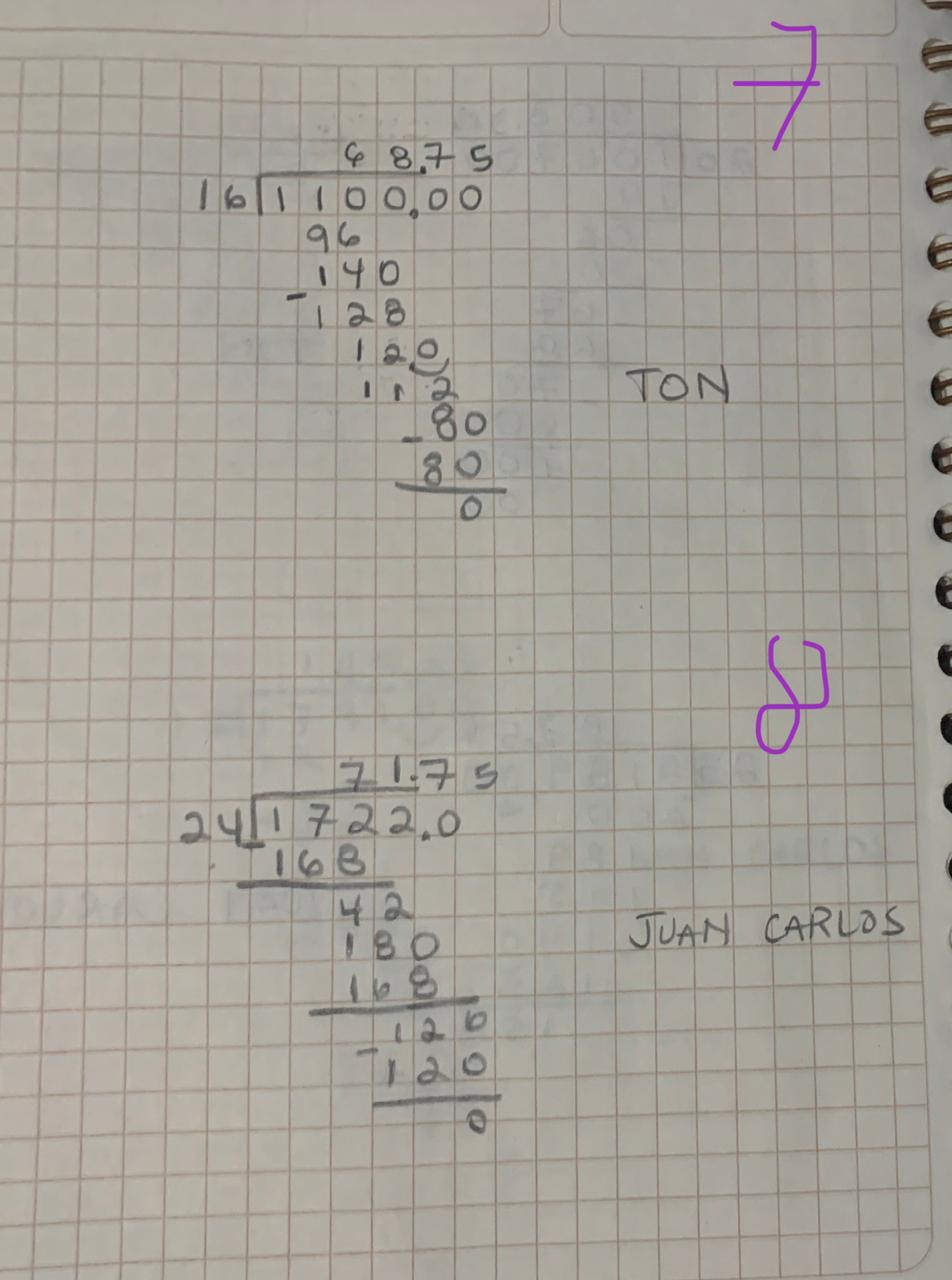 7
68.75
16 1100.00
96
140
- 128
120
112
TON
- 80
80
0
8
71.75
24 1722.0
168
42
JUAN CARLOS
180
168
120
- 120
0